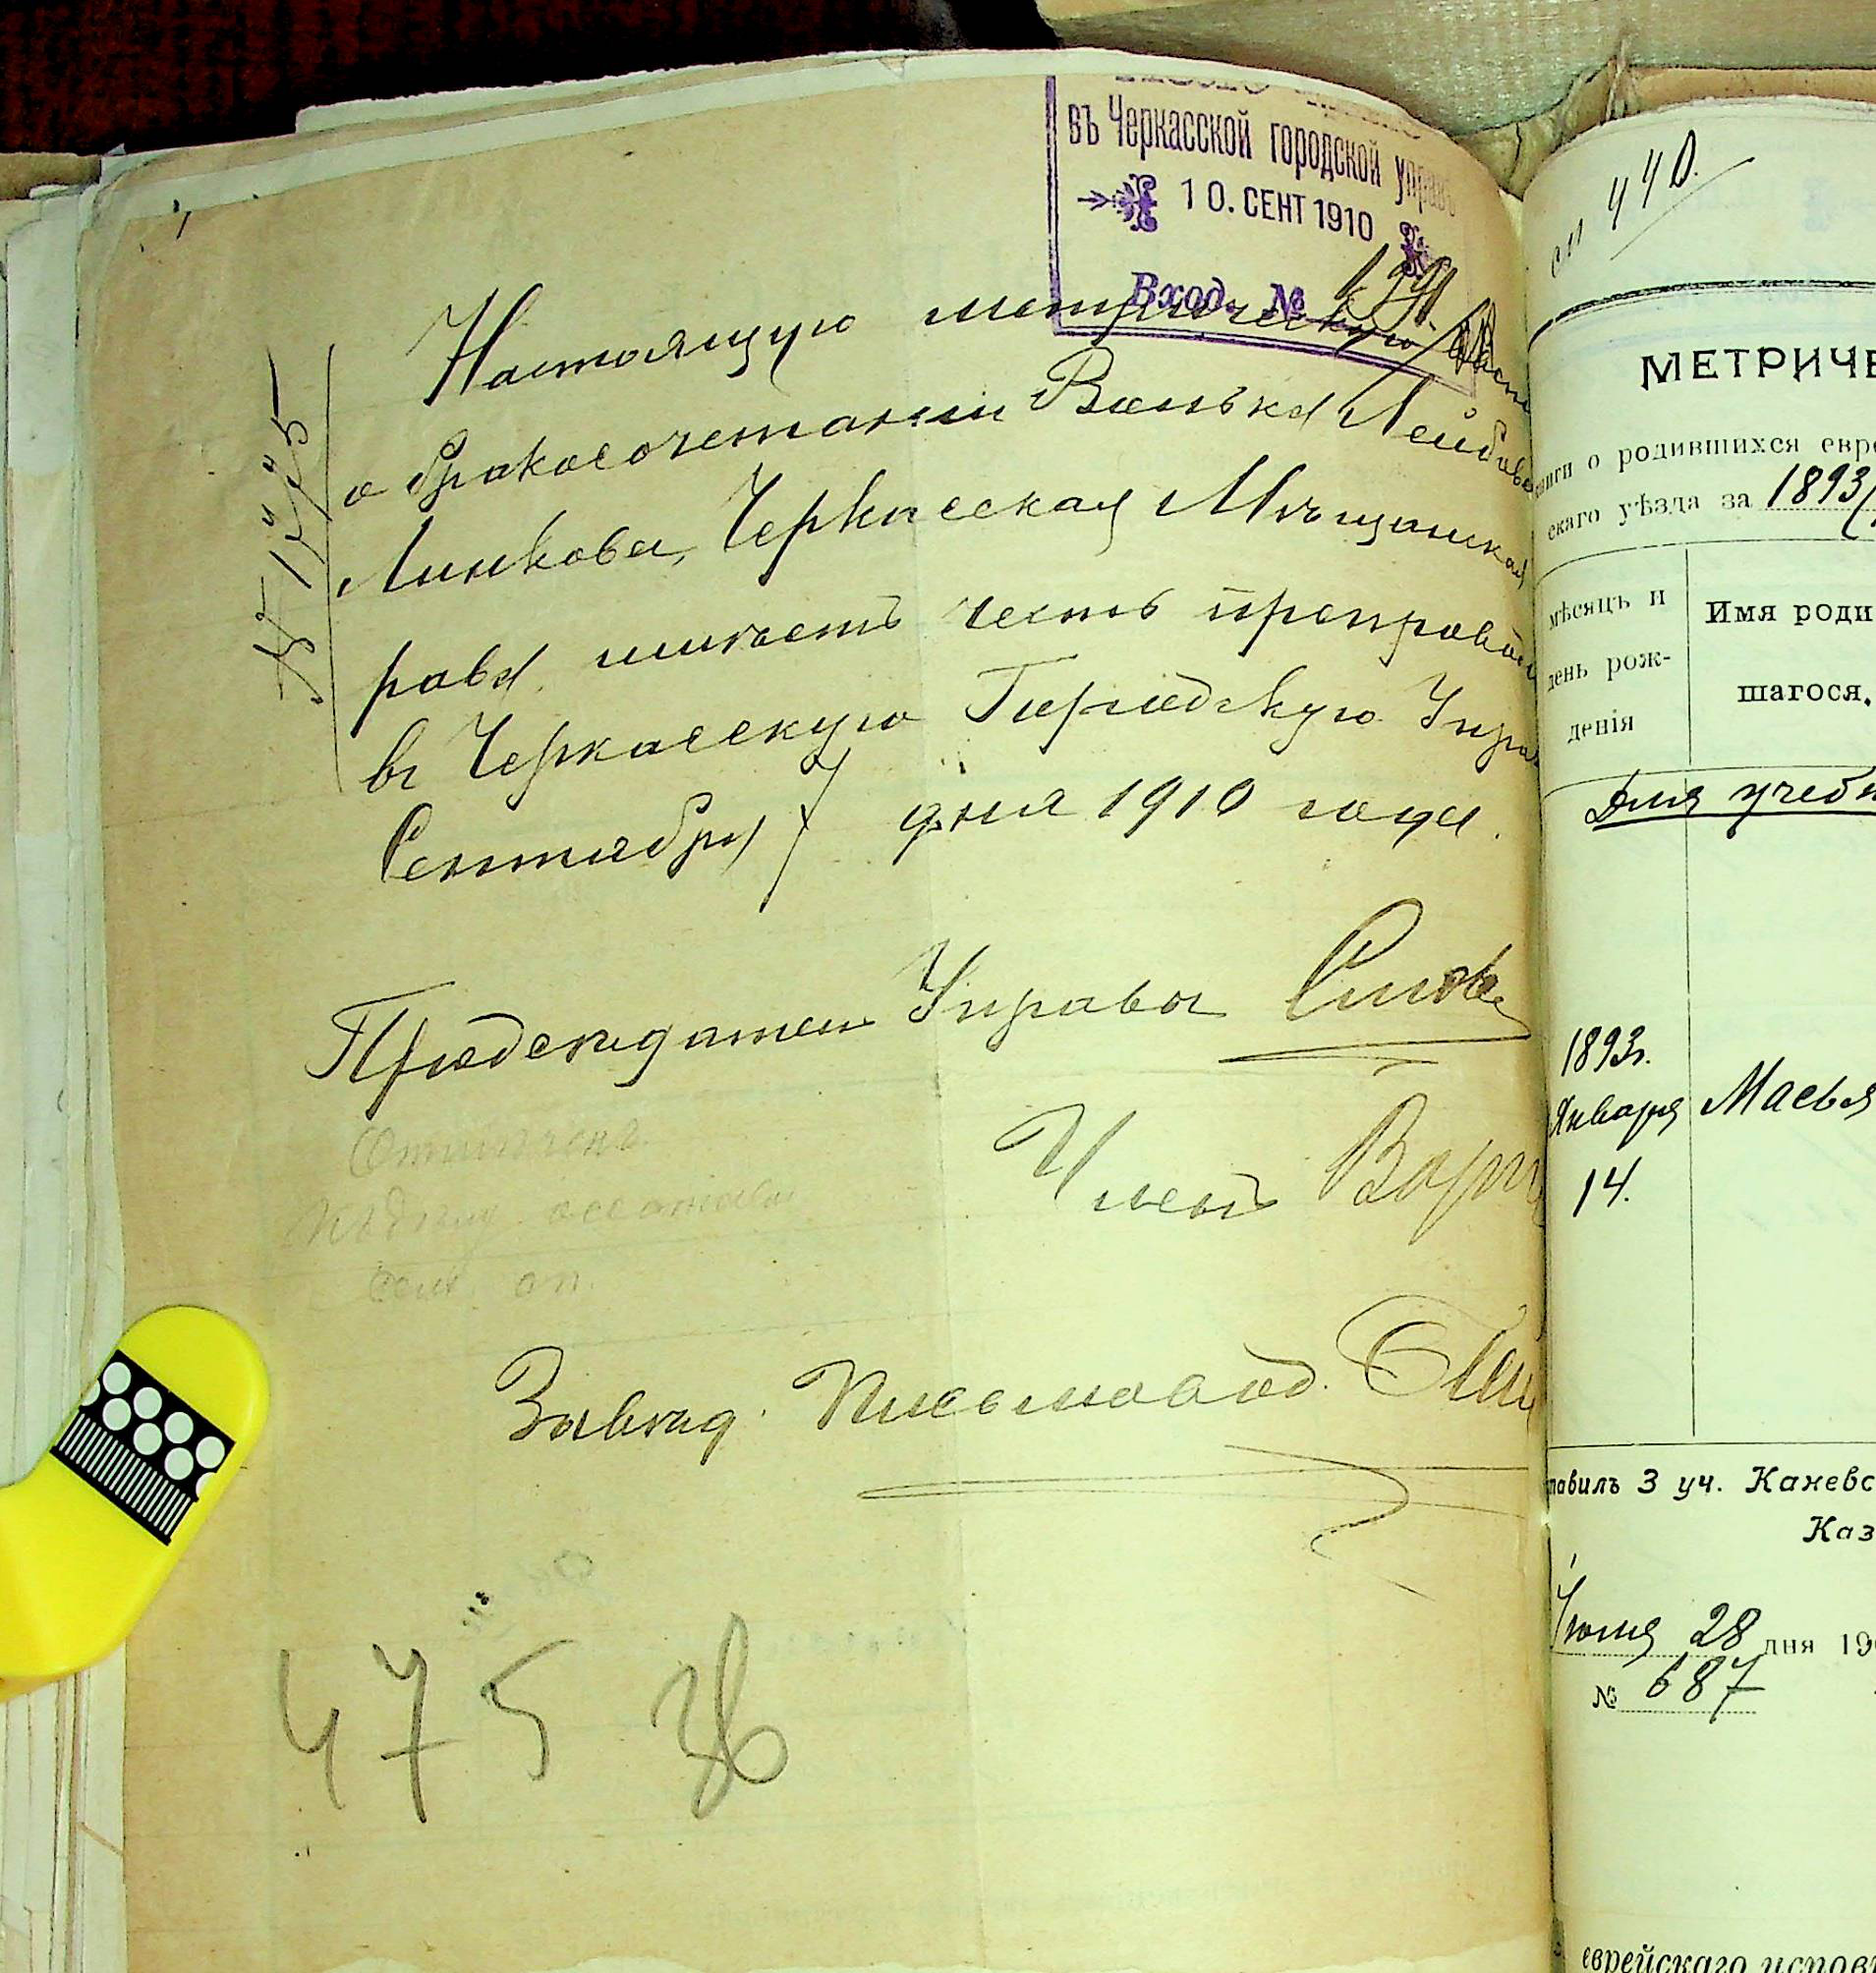 въ Черкасской городской управѣ
10. СЕНТ 1910
Вход. №
Настоящую метрическую
о бракосочетании Волька Лейбова
Линкова, Черкасская Мѣщанская
рава имѣетъ честь препровод
въ Черкасскую Городскую Упра
Сентября 7 дня 1910 года.
Предсѣдатель Управы
Членъ
Завѣд. Письмовод.
475 36
440.
МЕТРИЧЕ
ниги о родившихся евре
скаго уѣзда за 1893
мѣсяцъ и
день рож-
денія
Имя роди
шагося.
Для учебн
1893г.
Января
14.
Масья
тавилъ 3 уч. Каневс
Каз
Іюля 28 дня 19
№ 687
еврейскаго испов